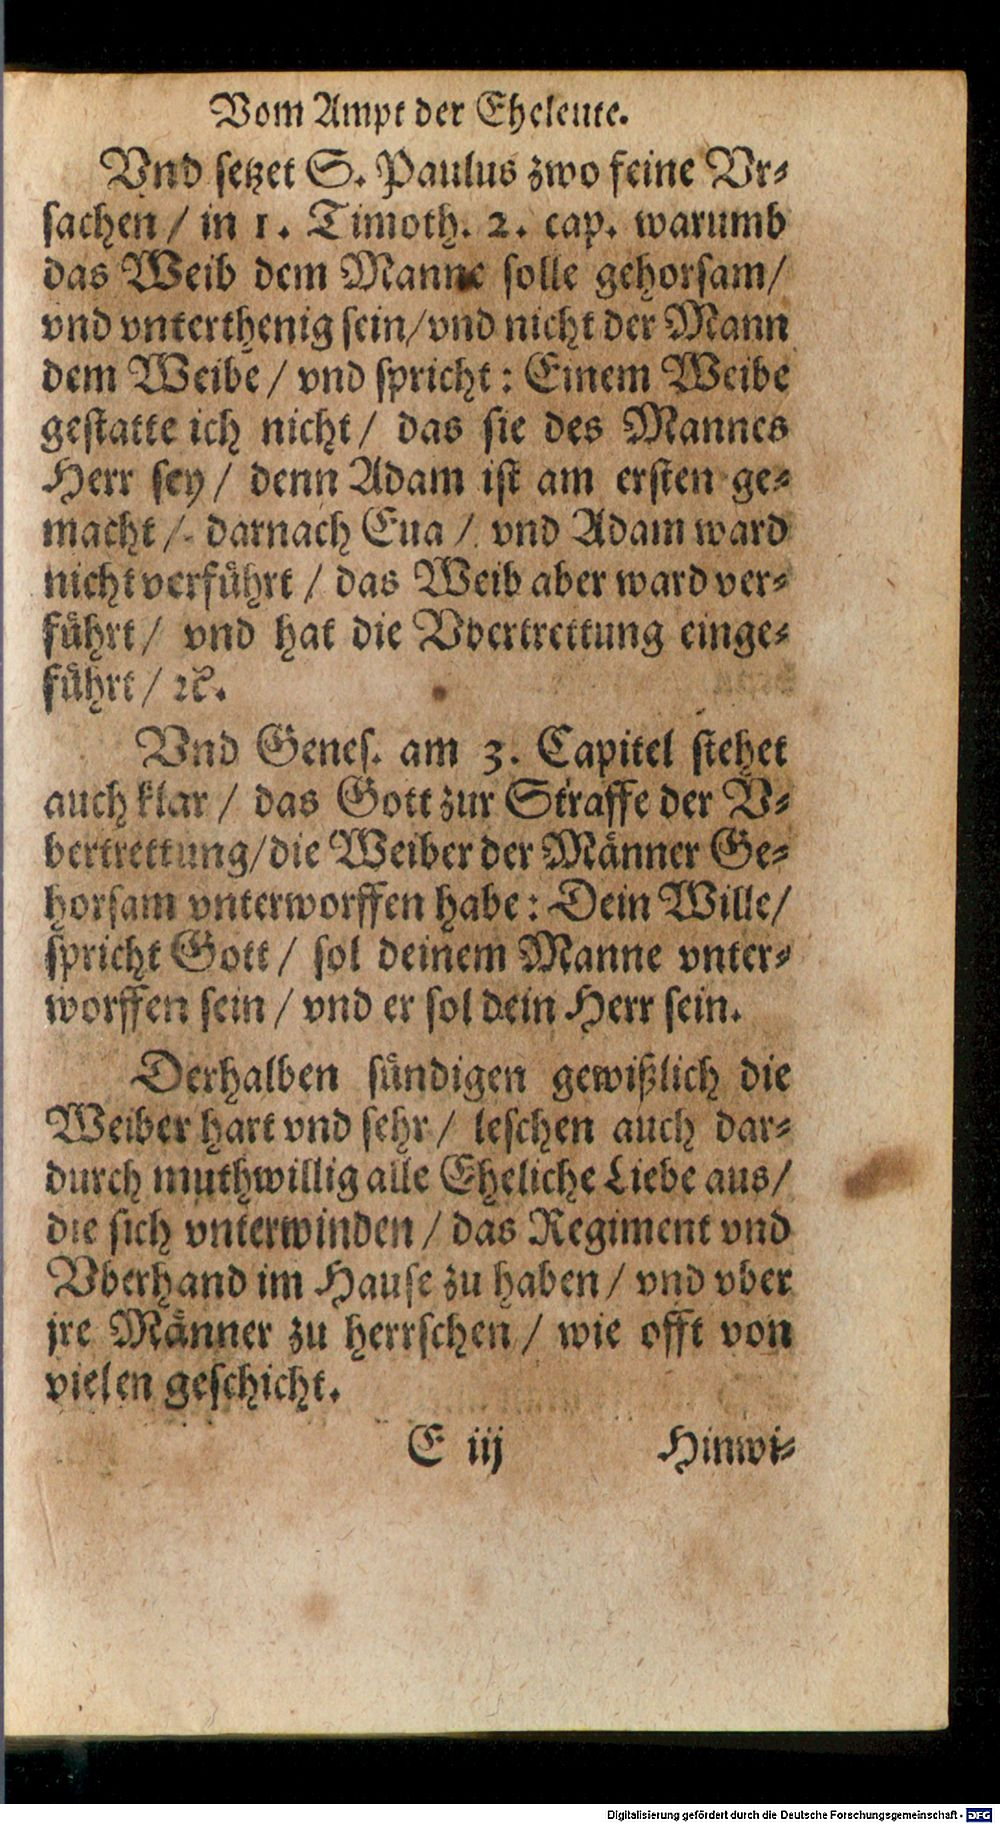 Vom Ampt der Eheleute.
Vnd setzet S. Paulus zwo feine Vr-
sachen / in 1. Timoth. 2. cap. warumb
das Weib dem Manne solle gehorsam/
vnd vnterthenig sein/vnd nicht der Mann
dem Weibe / vnd spricht: Einem Weibe
gestatte ich nicht / das sie des Mannes
Herr sey / denn Adam ist am ersten ge-
macht / darnach Eua / vnd Adam ward
nicht verführt / das Weib aber ward ver-
führt / vnd hat die Vbertrettung einge-
führt / ꝛc.
Vnd Genes. am 3. Capitel stehet
auch klar / das Gott zur Straffe der V-
bertrettung/die Weiber der Männer Ge-
horsam vnterworffen habe: Dein Wille/
spricht Gott / sol deinem Manne vnter-
worffen sein / vnd er sol dein Herr sein.
Derhalben sündigen gewißlich die
Weiber hart vnd sehr / leschen auch dar-
durch muthwillig alle Eheliche Liebe aus/
die sich vnterwinden / das Regiment vnd
Vberhand im Hause zu haben / vnd vber
jre Männer zu herrschen / wie offt von
vielen geschicht.
E iij Hinwi-
Digitalisierung gefördert durch die Deutsche Forschungsgemeinschaft - DFG